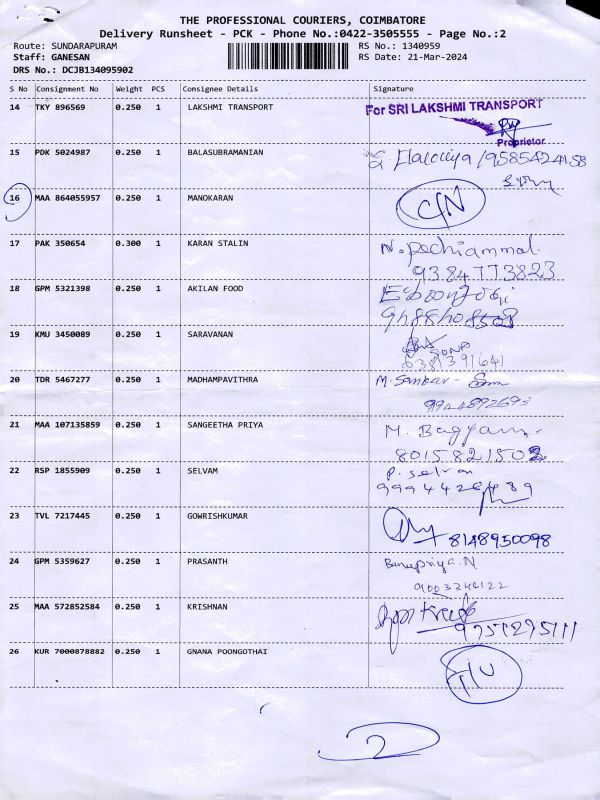 THE PROFESSIONAL COURIERS, COIMBATORE
Delivery Runsheet - PCK - Phone No.:0422-3505555 - Page No.:2
Route: SUNDARAPURAM RS No.: 1340959
Staff: GANESAN RS Date: 21-Mar-2024
DRS No.: DCJB134095902
S No Consignment No Weight PCS Consignee Details Signature
14 TKY 896569 0.250 1 LAKSHMI TRANSPORT For SRI LAKSHMI TRANSPORT
Proprietor
15 PDK 5024987 0.250 1 BALASUBRAMANIAN
16 MAA 864055957 0.250 1 MANOKARAN
17 PAK 350654 0.300 1 KARAN STALIN N. pechiammal.
9384773823
18 GPM 5321398 0.250 1 AKILAN FOOD
19 KMU 3450089 0.250 1 SARAVANAN
20 TDR 5467277 0.250 1 MADHAMPAVITHRA M. Sankar -
9944892693
21 MAA 107135859 0.250 1 SANGEETHA PRIYA M.
22 RSP 1855909 0.250 1 SELVAM P. selvan
23 TVL 7217445 0.250 1 GOWRISHKUMAR 8148950098
24 GPM 5359627 0.250 1 PRASANTH Banupriya.N
25 MAA 572852584 0.250 1 KRISHNAN
26 KUR 7000878882 0.250 1 GNANA POONGOTHAI
2